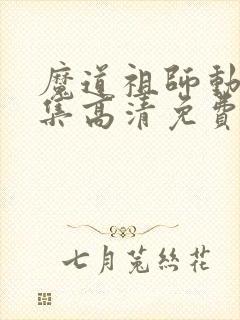 魔道祖師動
集高清免費
七月菟絲花